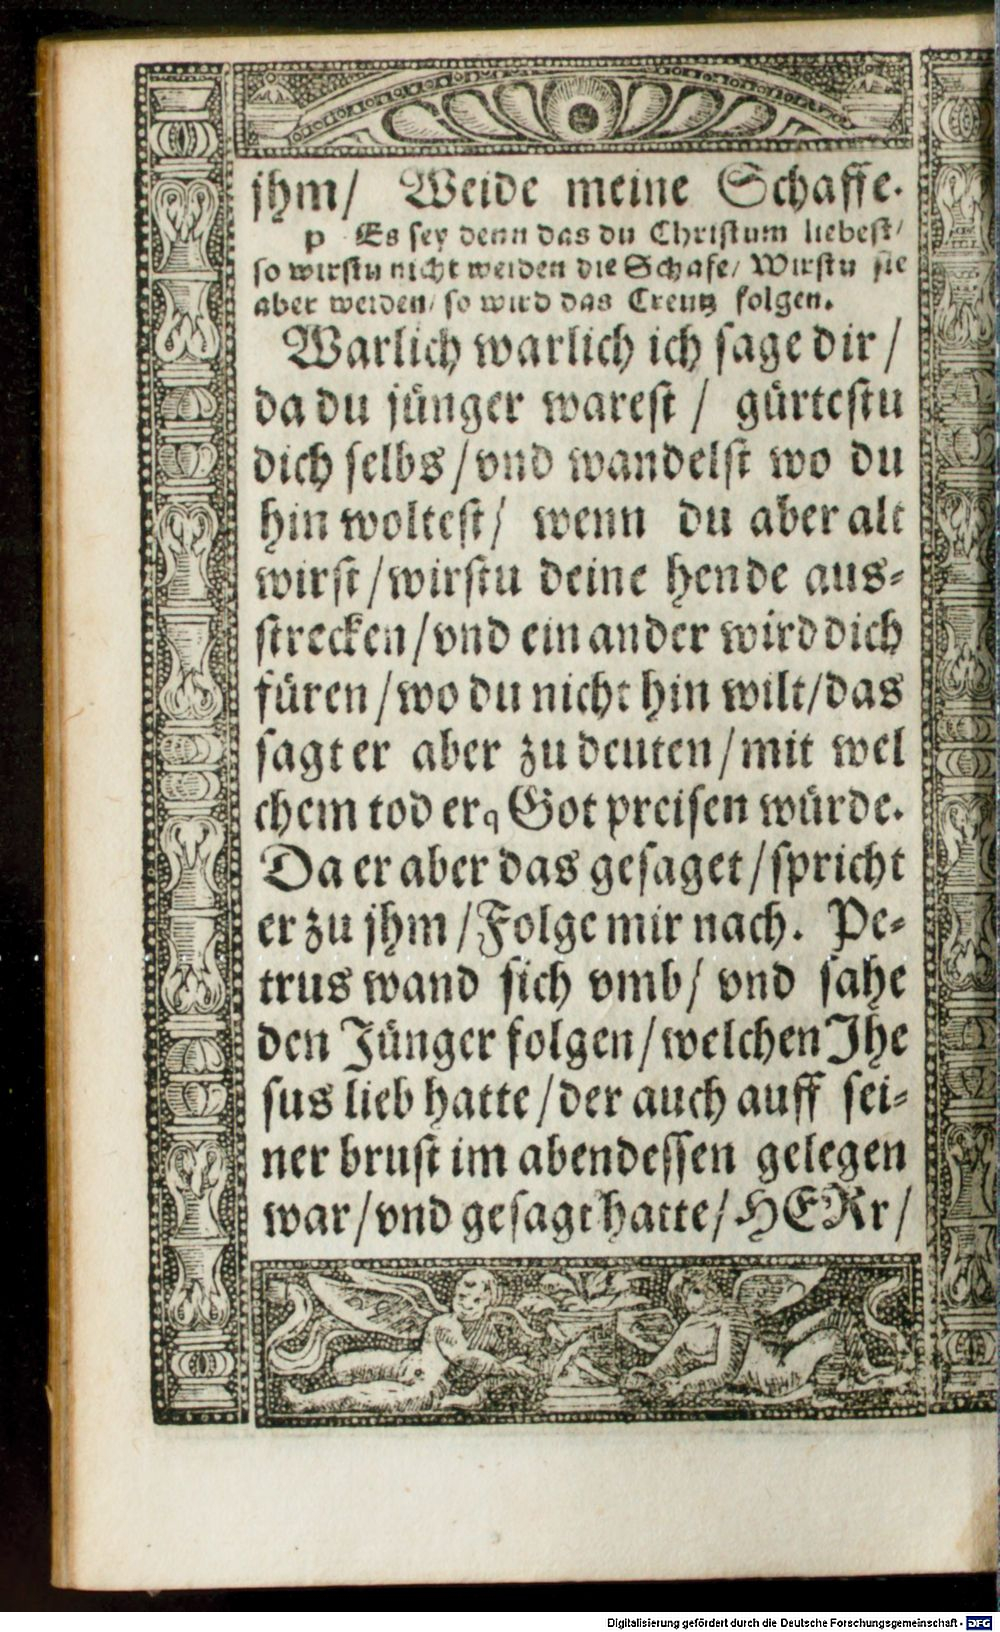 jhm/ Weide meine Schaffe.
p Es sey denn das du Christum liebest/
so wirstu nicht weiden die Schafe/ Wirstu sie
aber weiden/ so wird das Creutz folgen.
Warlich warlich ich sage dir/
da du jünger warest / gürtestu
dich selbs/vnd wandelst wo du
hin woltest/ wenn du aber alt
wirst/wirstu deine hende aus-
strecken/vnd ein ander wird dich
füren/wo du nicht hin wilt/das
sagt er aber zu deuten/mit wel
chem tod erq Got preisen würde.
Da er aber das gesaget/spricht
er zu jhm/Folge mir nach. Pe-
trus wand sich vmb/ vnd sahe
den Jünger folgen/welchen Jhe
sus lieb hatte/der auch auff sei-
ner brust im abendessen gelegen
war/vnd gesagt hatte/HERr/
Digitalisierung gefördert durch die Deutsche Forschungsgemeinschaft - DFG